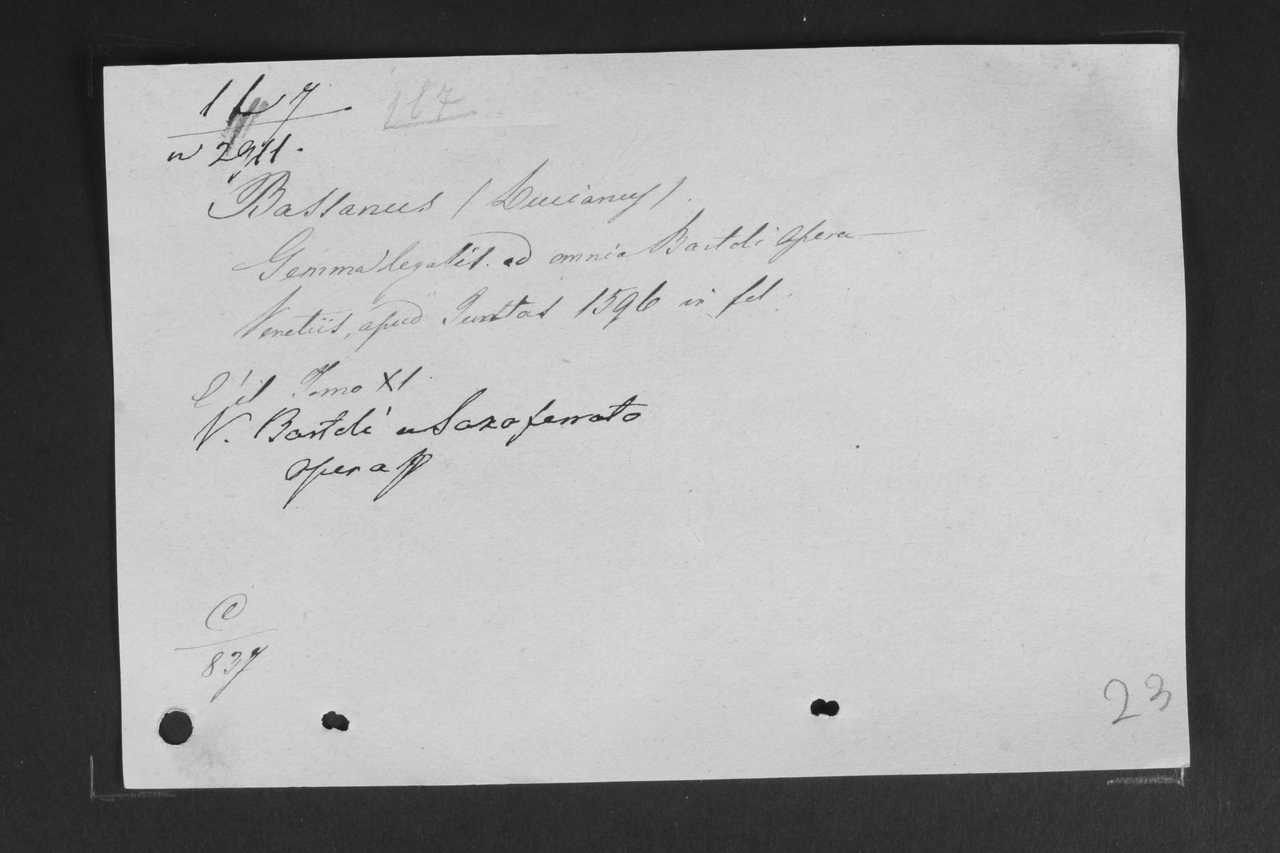 167
n 2911.
Bassanus (Lucianus).
Gemma legalis. ad omnia Bartoli opera
Venetiis, apud Juntas 1596 in fol.
È il Tomo XI.
V. Bartoli a Saxoferrato
opera
C
837
23